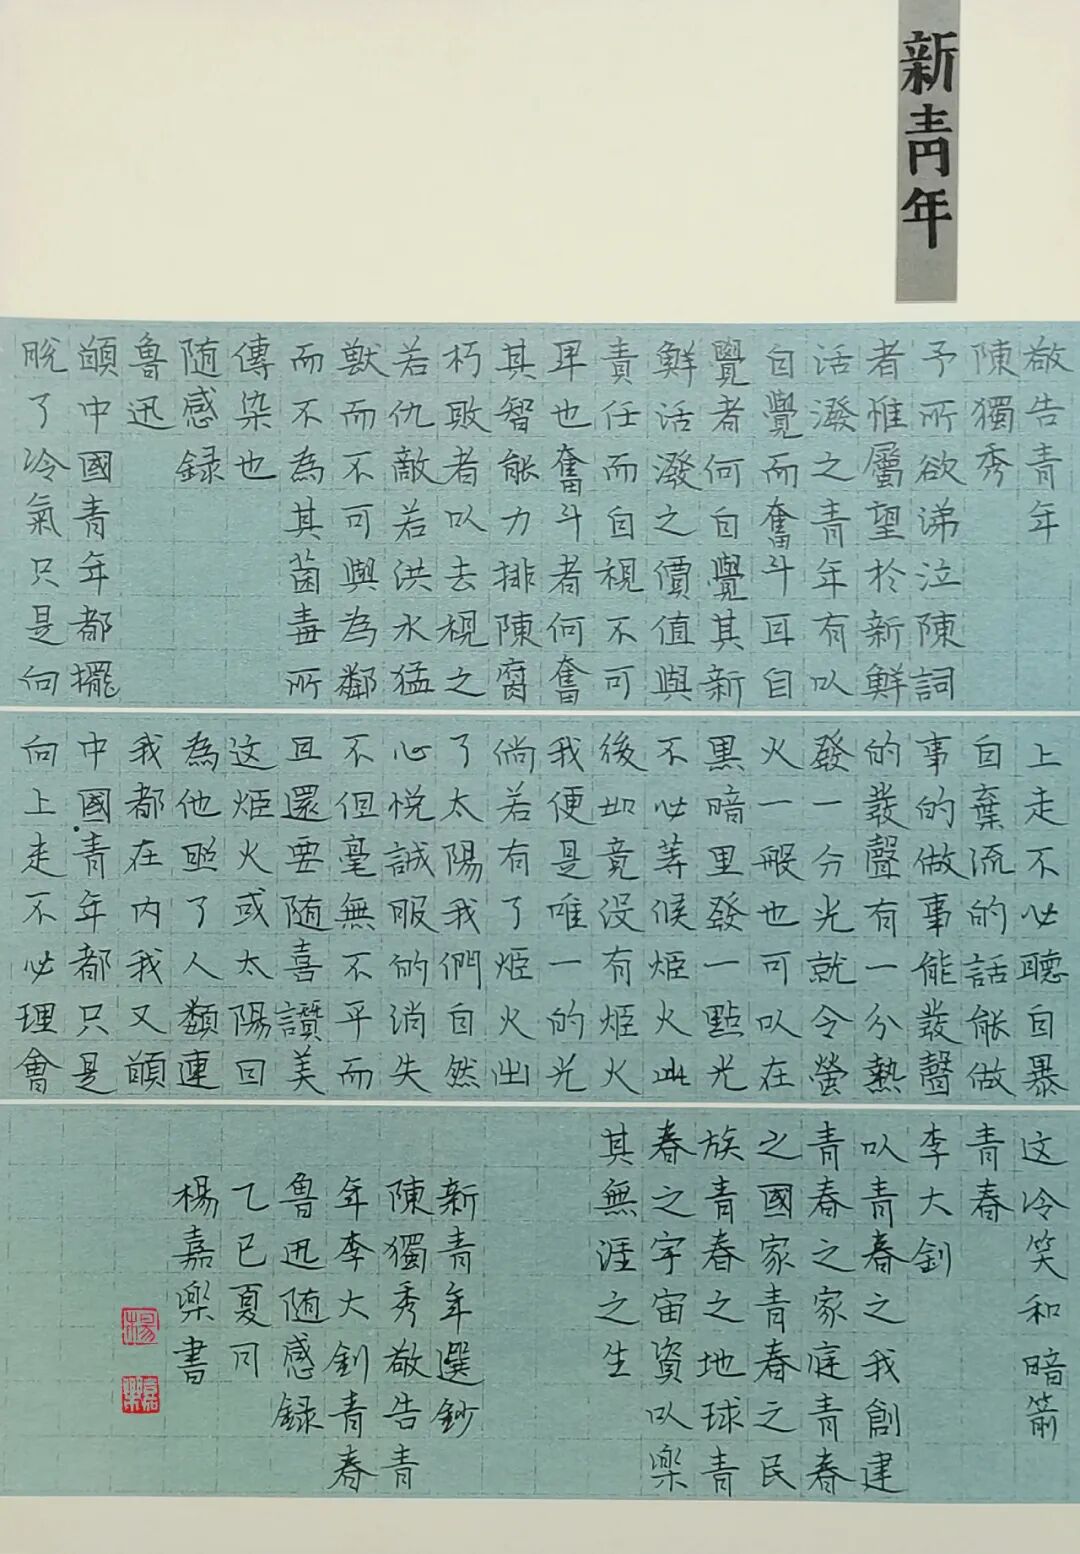 新青年
敬告青年
陳獨秀
予所欲涕泣陳詞
者惟屬望於新鮮
活潑之青年有以
自覺而奮斗耳自
覺者何自覺其新
鮮活潑之價值與
責任而自視不可
卑也奮斗者何奮
其智能力排陳腐
朽敗者以去視之
若仇敵若洪水猛
獸而不可與為鄰
而不為其菌毒所
傳染也
随感録
魯迅
願中國青年都擺
脫了冷氣只是向
上走不必聽自暴
自棄流的話能做
事的做事能發聲
的發聲有一分熱
發一分光就令螢
火一般也可以在
黑暗里發一點光
不必等候炬火此
後如竟沒有炬火
我便是唯一的光
倘若有了炬火出
了太陽我們自然
心悅誠服的消失
不但毫無不平而
且還要随喜讚美
这炬火或太陽因
為他照了人類連
我都在内我又願
中國青年都只是
向上走不必理會
这冷笑和暗箭
青春
李大釗
以青春之我創建
青春之家庭青春
之國家青春之民
族青春之地球青
春之宇宙資以樂
其無涯之生
新青年選鈔
陳獨秀敬告青
年李大釗青春
魯迅随感録
乙巳夏月
楊嘉樂書
楊
嘉樂